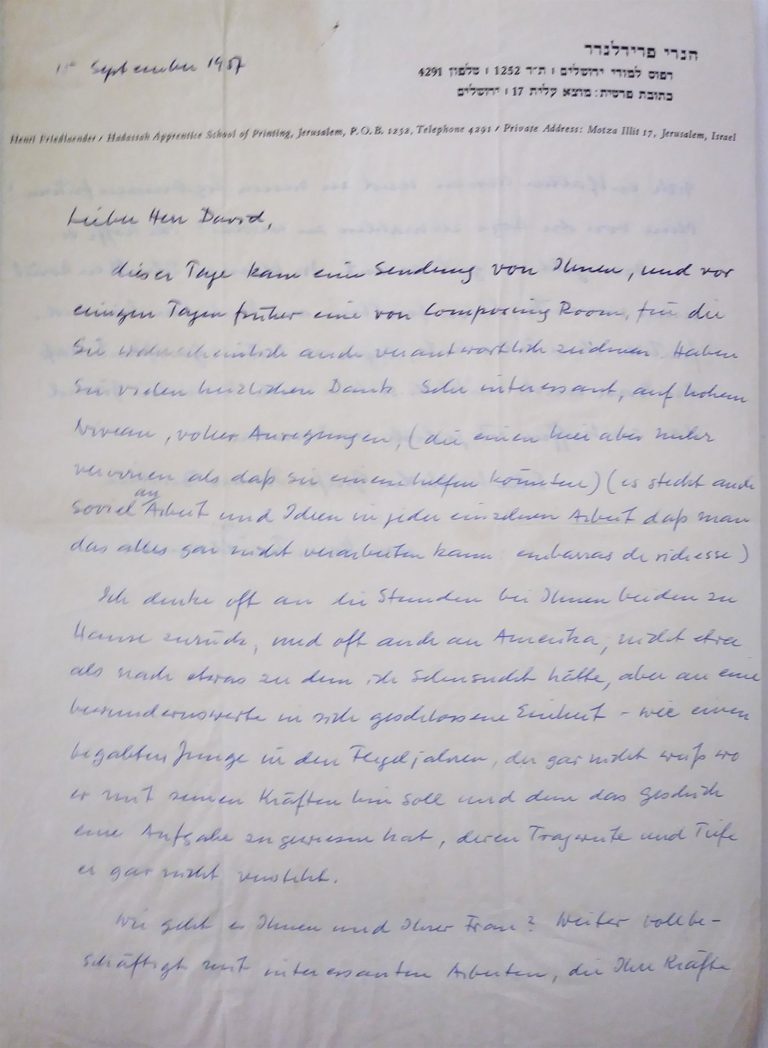 1st September 1957
הנרי פרידלנדר
דפוס למודי ירושלים / ת״ד 1252 / טלפון 4291
כתובת פרטית: מוצא עלית 17 / ירושלים
Henri Friedlaender / Hadassah Apprentice School of Printing, Jerusalem, P.O.B. 1252, Telephone 4291 / Private Address: Motza Illit 17, Jerusalem, Israel
Lieber Herr David,
dieser Tage kam eine Sendung von Ihnen, und vor
einigen Tagen früher eine von Composing Room, für die
Sie wahrscheinlich auch verantwortlich zeichnen. Haben
Sie vielen herzlichen Dank. Sehr interessant, auf hohem
Niveau, voller Anregungen, (die einen hier aber mehr
verwirren als daß sie einem helfen könnten) (es steckt auch
soviel an Arbeit und Ideen in jeder einzelnen Arbeit daß man
das alles gar nicht verarbeiten kann: embarras de richesse)
Ich denke oft an die Stunden bei Ihnen beiden zu
Hause zurück, und oft auch an Amerika, nicht etwa
als nach etwas zu dem ich Sehnsucht hätte, aber an eine
bewundernswerte in sich geschlossene Einheit – wie einen
begabten Junge in den Flegeljahren, der gar nicht weiß wo
er mit seinen Kräften hin soll und dem das Geschick
eine Aufgabe zugewiesen hat, deren Tragweite und Tiefe
er gar nicht versteht.
Wie geht es Ihnen und Ihrer Frau? Weiter vollbe-
schäftigt mit interessanten Arbeiten, die Ihre Kräfte